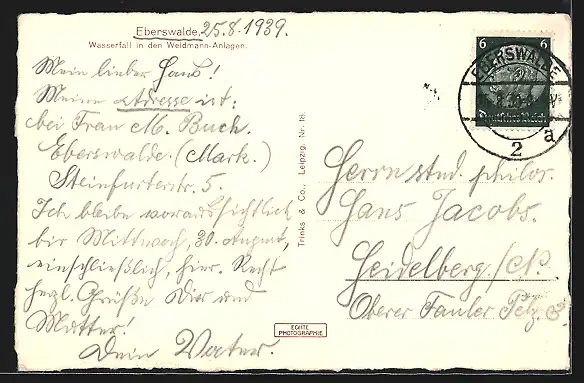 Eberswalde, 25.8.1939.
Wasserfall in den Weidmann-Anlagen.
Mein lieber Hans!
Meine Adresse ist:
bei Frau M. Buch.
Eberswalde. (Mark.)
Steinfurterstr. 5.
Ich bleibe voraussichtlich
bis Mittwoch, 30. August,
einschließlich, hier. Recht
herzl. Grüße Dir und
Mutter!
Dein Vater.
Trinks & Co., Leipzig. Nr. 18.
ECHTE
PHOTOGRAPHIE
6 6
Deutsches Reich
EBERSWALDE
2 a
Herrn stud. philos.
Hans Jacobs.
Heidelberg/N.
Oberer Fauler Pelz